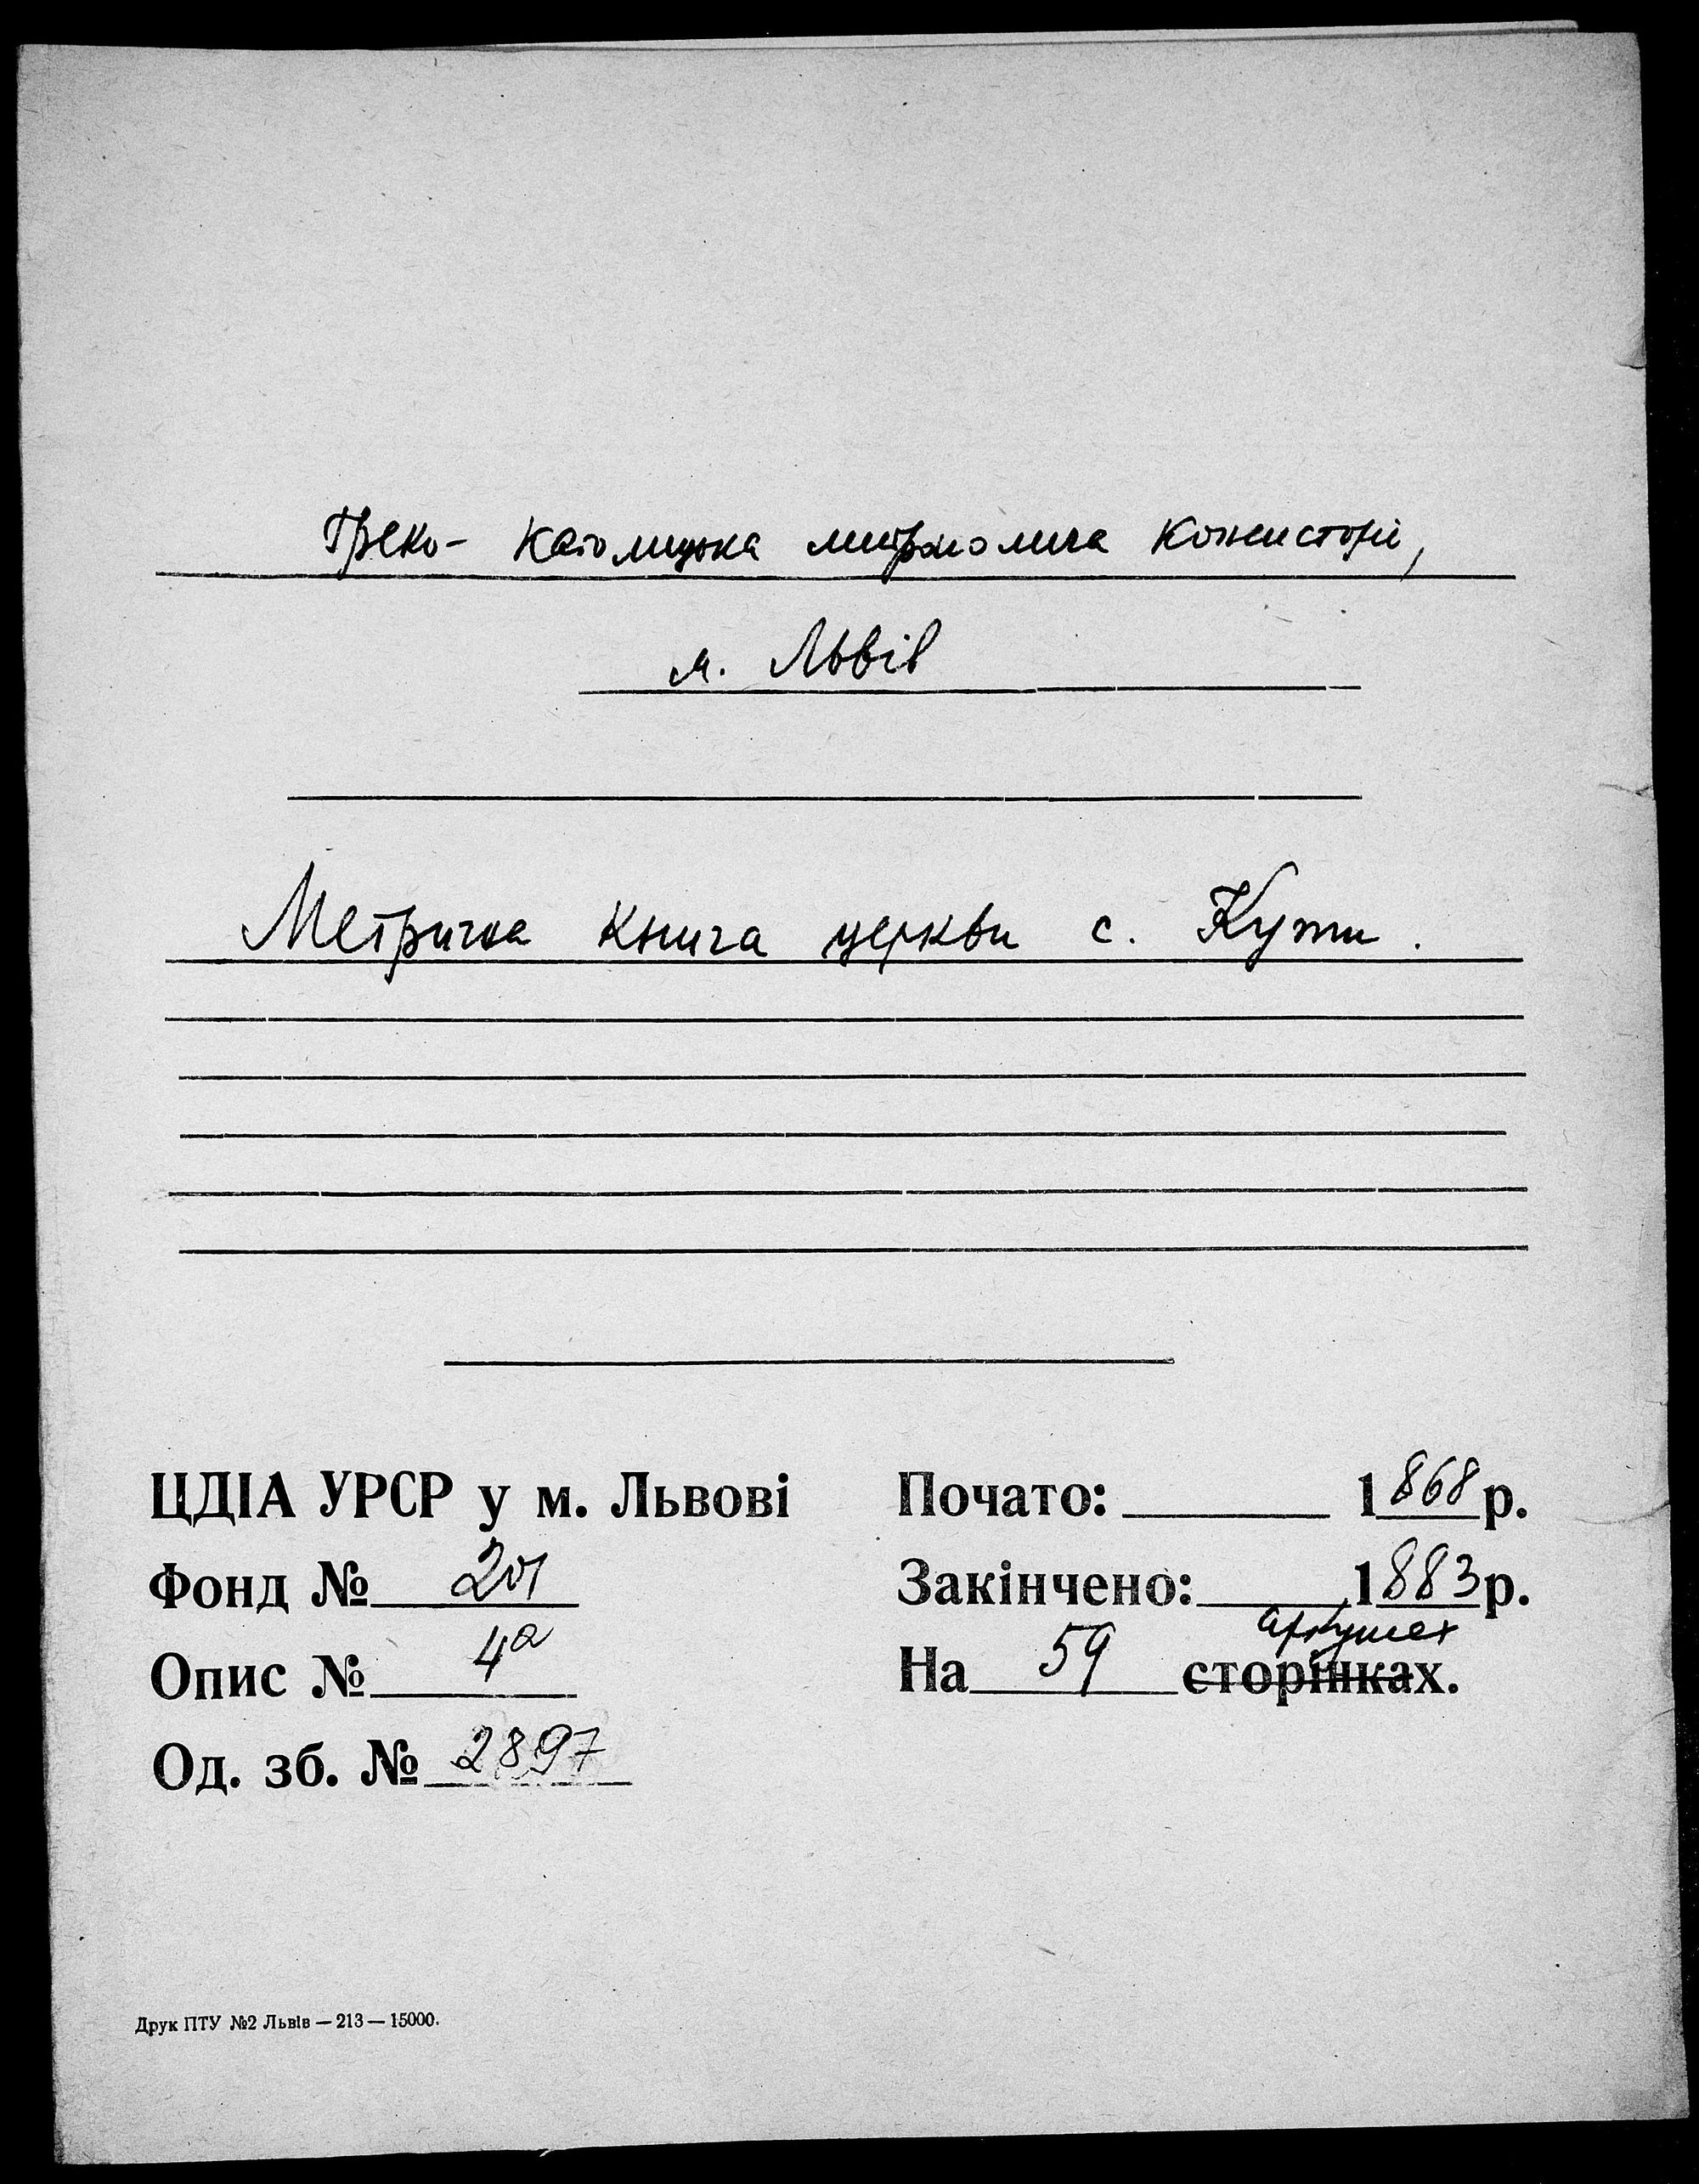 Греко- Католицька митрополича консисторія,
м. Львів
Метрична книга церкви с. Кути.
ЦДІА УРСР у м. Львові
Фонд № 201
Опис № 4а
Од. зб. № 2897
Почато: 1868 р.
Закінчено: 1883 р.
аркушах
На 59 сторінках.
Друк ПТУ №2 Львів — 213 — 15000.